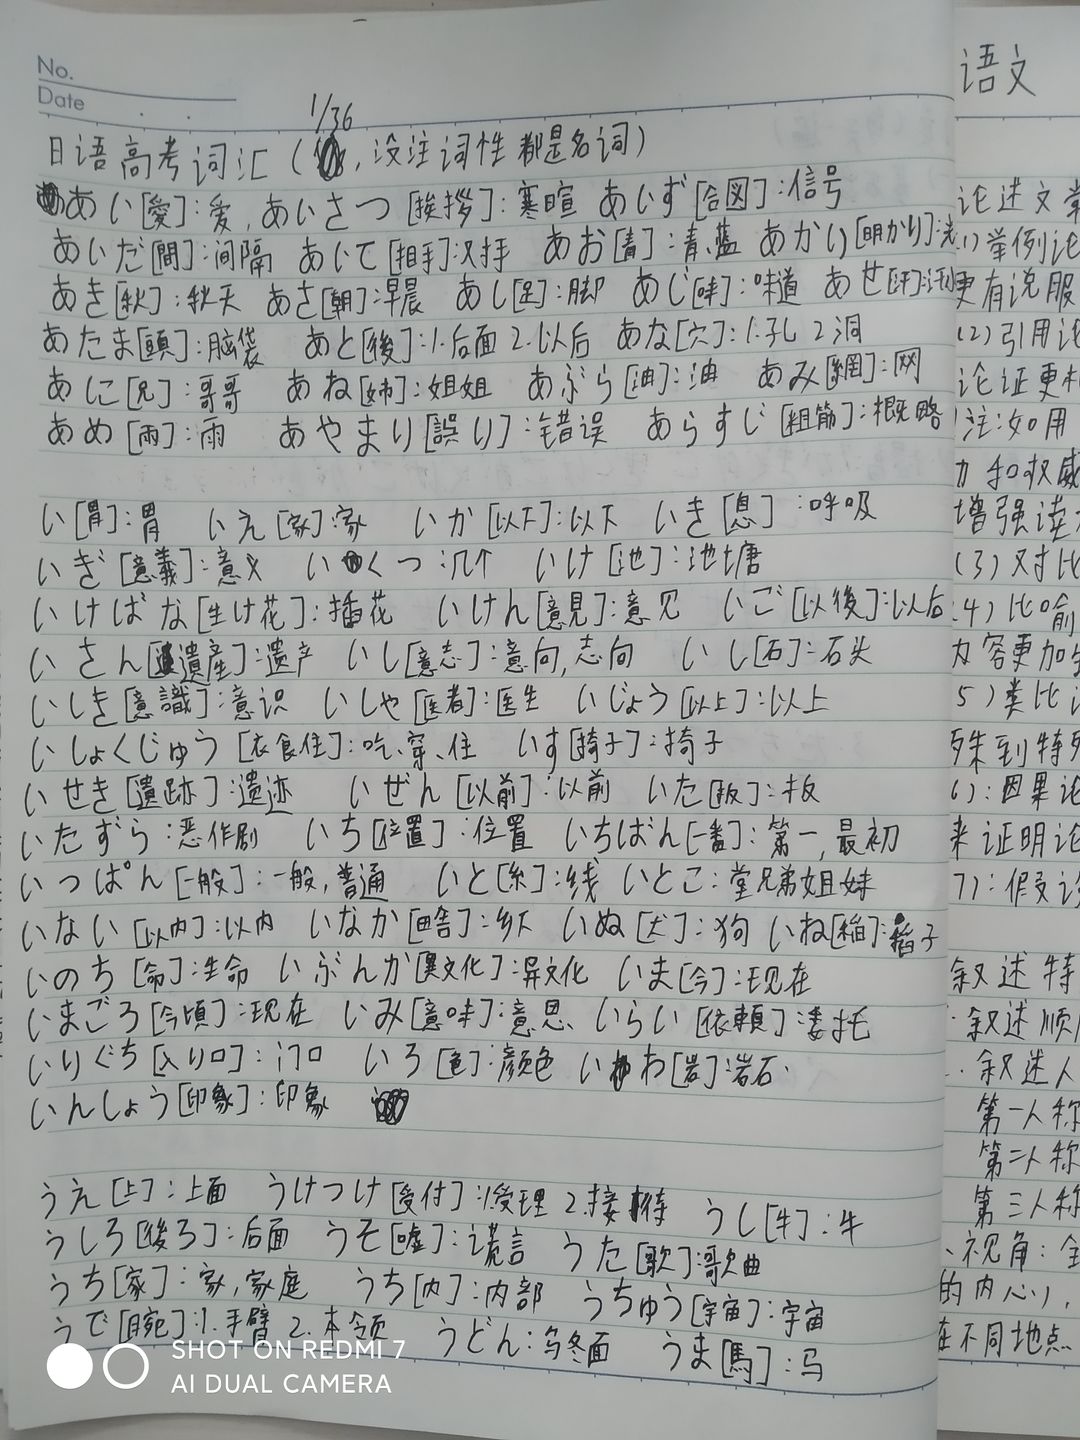 No.
Date
1/36
日语高考词汇(,没注词性都是名词)
あい[愛]:爱,あいさつ[挨拶]:寒暄 あいず[合図]:信号
あいだ[間]:间隔 あいて[相手]:对手 あお[青]:青、蓝 あかり[明かり]:光
あき[秋]:秋天 あさ[朝]:早晨 あし[足]:脚 あじ[味]:味道 あせ[汗]:汗
あたま[頭]:脑袋 あと[後]:1.后面 2.以后 あな[穴]:1.孔 2.洞
あに[兄]:哥哥 あね[姉]:姐姐 あぶら[油]:油 あみ[網]:网
あめ[雨]:雨 あやまり[誤り]:错误 あらすじ[粗筋]:概略
い[胃]:胃 いえ[家]:家 いか[以下]:以下 いき[息]:呼吸
いぎ[意義]:意义 いくつ:几个 いけ[池]:池塘
いけばな[生け花]:插花 いけん[意見]:意见 いご[以後]:以后
いさん[遺産]:遗产 いし[意志]:意向,志向 いし[石]:石头
いしき[意識]:意识 いしゃ[医者]:医生 いじょう[以上]:以上
いしょくじゅう[衣食住]:吃、穿、住 いす[椅子]:椅子
いせき[遺跡]:遗迹 いぜん[以前]:以前 いた[板]:板
いたずら:恶作剧 いち[位置]:位置 いちばん[一番]:第一,最初
いっぱん[一般]:一般,普通 いと[糸]:线 いとこ:堂兄弟姐妹
いない[以内]:以内 いなか[田舎]:乡下 いぬ[犬]:狗 いね[稲]:稻子
いのち[命]:生命 いぶんか[異文化]:异文化 いま[今]:现在
いまごろ[今頃]:现在 いみ[意味]:意思、いらい[依頼]:委托
いりぐち[入り口]:门口 いろ[色]:颜色 いわ[岩]:岩石.
いんしょう[印象]:印象
うえ[上]:上面 うけつけ[受付]:1.受理 2.接待 うし[牛]:牛
うしろ[後ろ]:后面 うそ[嘘]:谎言 うた[歌]:歌曲
うち[家]:家,家庭 うち[内]:内部 うちゅう[宇宙]:宇宙
うで[腕]:1.手臂 2.本领 うどん:乌冬面 うま[馬]:马
SHOT ON REDMI 7
AI DUAL CAMERA
语文
论述文常
(1)举例论
更有说服
(2)引用论
论证更
注:如用
力和权威
增强读
(3)对比
(4)比喻
内容更加生
5)类比论
殊到特殊
6):因果论
来证明论
7):假设
叙述特
叙述顺
叙述人
第一人称
第二人称
第三人称
、视角:全
的内心,
在不同地点